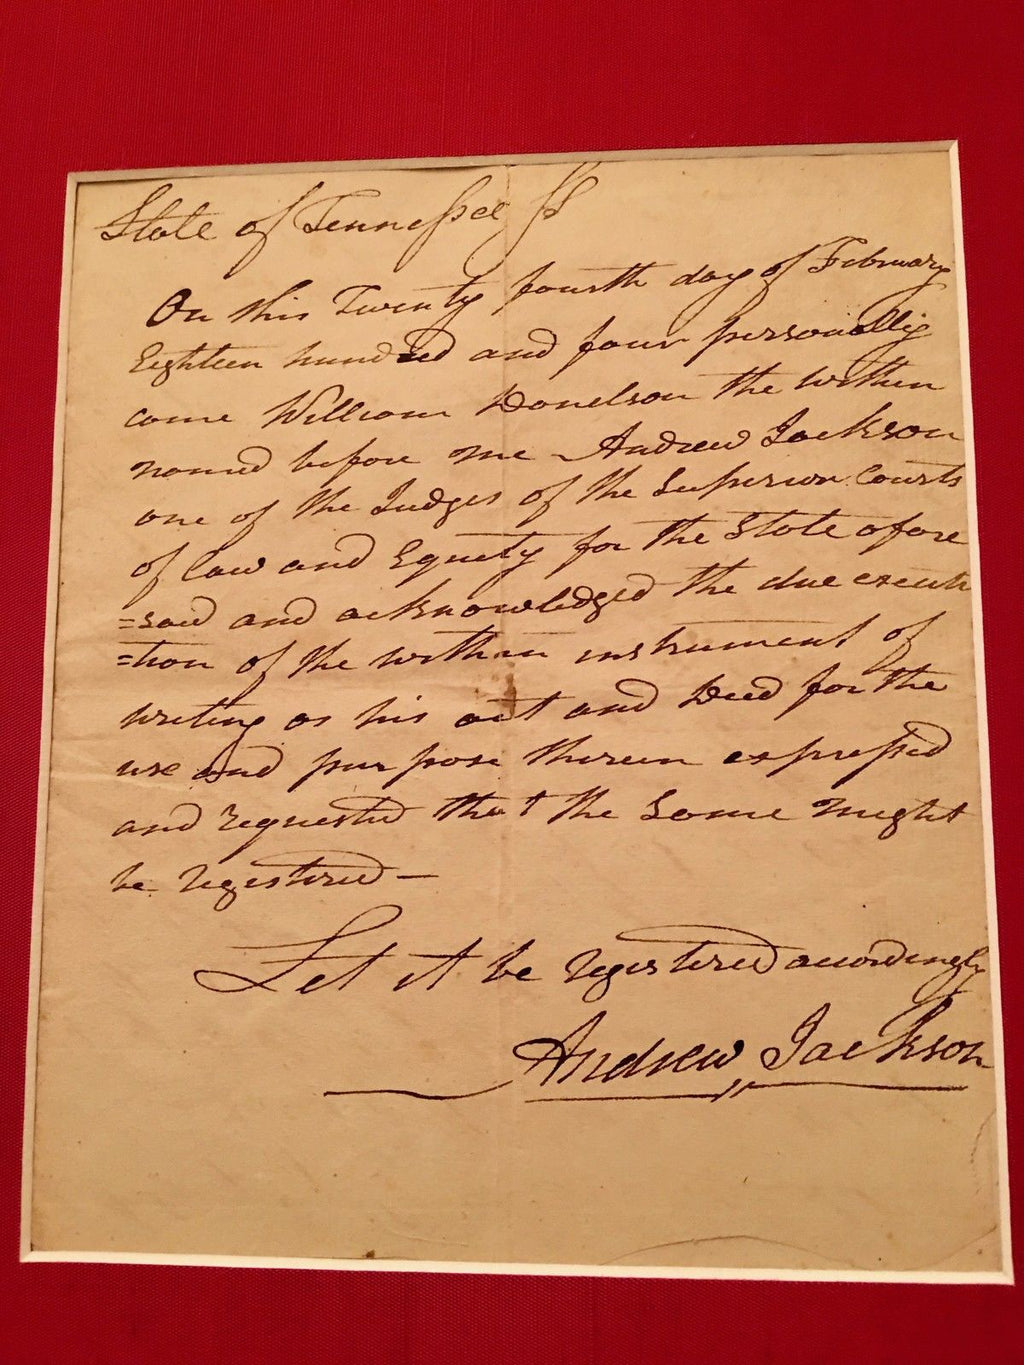 State of Tennessee Ss
On this Twenty fourth day of February
Eighteen hundred and four personally
came William Donelson the within
named before me Andrew Jackson
one of the Judges of the Superior Courts
of law and Equity for the State afore
=said and acknowledged the due execu
=tion of the within instrument of
writing as his act and Deed for the
use and purpose therein expressed
and requested that the same might
be registered —
Let it be registered accordingly
Andrew Jackson